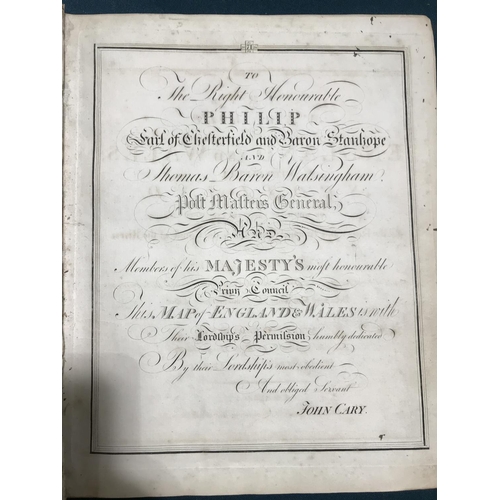 TO
The Right Honourable
PHILIP
Earl of Chesterfield and Baron Stanhope
AND
Thomas Baron Walsingham,
Poſt Maſters General,
AND
Members of his MAJESTY'S moſt honourable
Privy Council
This MAP of ENGLAND & WALES is with
Their Lordships Permiſsion, humbly dedicated
By their Lordships most obedient
And obliged Servant
JOHN CARY.